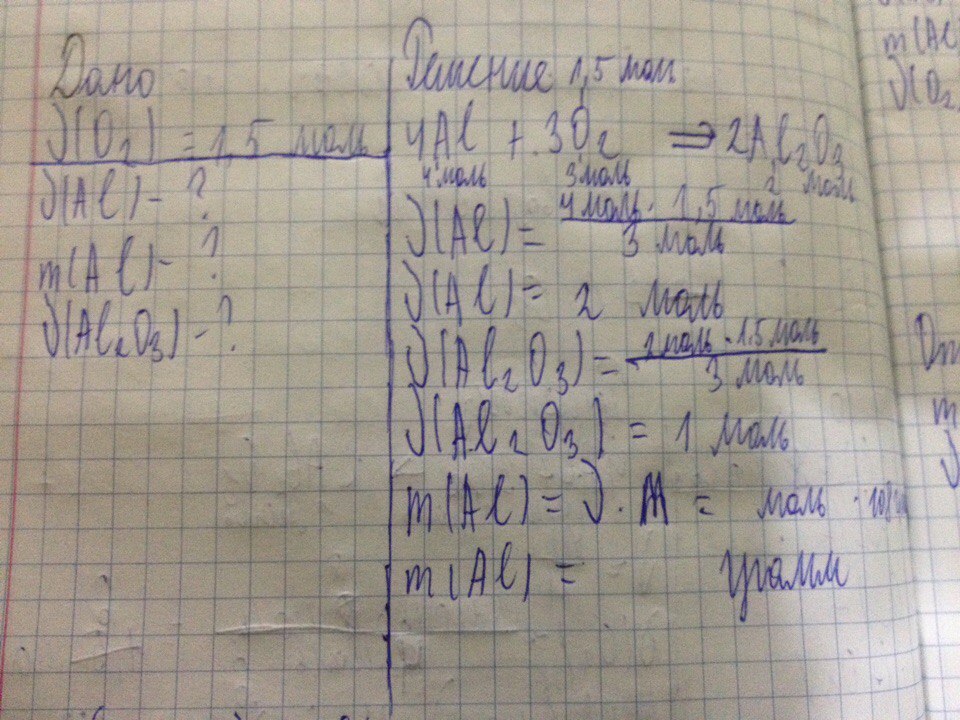 Дано
ν(O₂) = 1,5 моль
ν(Al) - ?
m(Al) - ?
ν(Al₂O₃) - ?
Решение 1,5 моль
4Al + 3O₂ ⇒ 2Al₂O₃
4 моль 3 моль 2 моль
ν(Al) = 4 моль · 1,5 моль / 3 моль
ν(Al) = 2 моль
ν(Al₂O₃) = 2 моль · 1,5 моль / 3 моль
ν(Al₂O₃) = 1 моль
m(Al) = ν · M = моль ·
m(Al) = грамм
m(Al
ν(O₂
m
ν